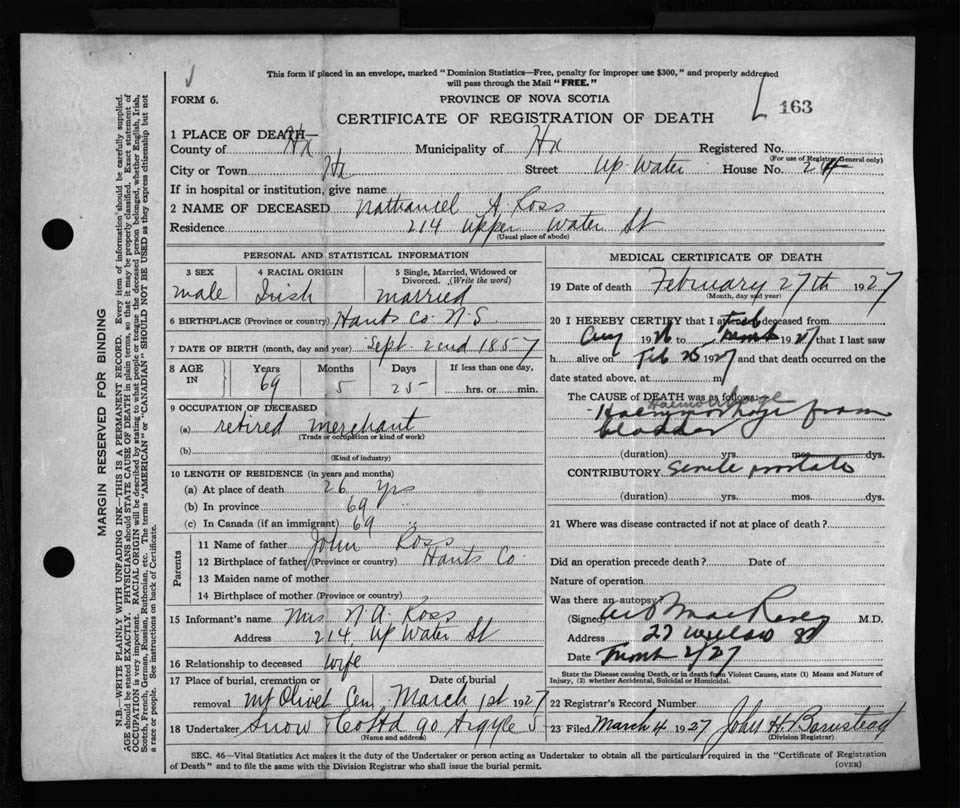 This form if placed in an envelope, marked "Dominion Statistics—Free, penalty for improper use $300," and properly addressed
will pass through the Mail "FREE."
FORM 6.
PROVINCE OF NOVA SCOTIA
163
CERTIFICATE OF REGISTRATION OF DEATH
1 PLACE OF DEATH—
County of Hx Municipality of Hx Registered No.
(For use of Registrar General only)
City or Town Hx Street Up Water House No. 214
If in hospital or institution, give name
2 NAME OF DECEASED Nathaniel A. Ross
Residence 214 Upper Water St
(Usual place of abode)
PERSONAL AND STATISTICAL INFORMATION
3 SEX 4 RACIAL ORIGIN 5 Single, Married, Widowed or
Divorced. (Write the word)
male Irish married
6 BIRTHPLACE (Province or country) Hants Co. N.S.
7 DATE OF BIRTH (month, day and year) Sept. 2nd 1857
8 AGE IN Years Months Days If less than one day,
69 5 25 hrs. or min.
9 OCCUPATION OF DECEASED
(a) retired merchant
(Trade or occupation or kind of work)
(b)
(Kind of industry)
10 LENGTH OF RESIDENCE (in years and months)
(a) At place of death 26 yrs
(b) In province 69 "
(c) In Canada (if an immigrant) 69 "
Parents
11 Name of father John Ross
12 Birthplace of father (Province or country) Hants Co.
13 Maiden name of mother
14 Birthplace of mother (Province or country)
15 Informant's name Mrs N. A. Ross
Address 214 Up Water St
16 Relationship to deceased wife
17 Place of burial, cremation or Date of burial
removal Mt Olivet Cem March 1st 1927
18 Undertaker Snow & Co Ltd 90 Argyle S
(Name and address)
MEDICAL CERTIFICATE OF DEATH
19 Date of death February 27th 1927
(Month, day and year)
20 I HEREBY CERTIFY that I attended deceased from
19 26 to 19 27 that I last saw
h alive on Feb 26 1927 and that death occurred on the
date stated above, at m
The CAUSE of DEATH was as follows:
Haemorrhage
Haemorrhage from
bladder
(duration) yrs. mos. dys.
CONTRIBUTORY Senile prostate
(duration) yrs. mos. dys.
21 Where was disease contracted if not at place of death?
Did an operation precede death? Date of
Nature of operation
Was there an autopsy?
(Signed) M.D.
Address 27
Date 2/27
State the Disease causing Death, or in death from Violent Causes, state (1) Means and Nature of
Injury, (2) whether Accidental, Suicidal or Homicidal.
22 Registrar's Record Number
23 Filed March 4 1927 John H. Barnstead
(Division Registrar)
SEC. 46—Vital Statistics Act makes it the duty of the Undertaker or person acting as Undertaker to obtain all the particulars required in the "Certificate of Registration
of Death" and to file the same with the Division Registrar who shall issue the burial permit.
(OVER)
MARGIN RESERVED FOR BINDING
N.B.—WRITE PLAINLY WITH UNFADING INK—THIS IS A PERMANENT RECORD. Every item of information should be carefully supplied.
AGE should be stated EXACTLY. PHYSICIANS should STATE CAUSE OF DEATH in plain terms, so that it may be properly classified. Exact statement of
OCCUPATION is very important. RACIAL ORIGIN will be described by stating to what people or tongue the deceased person belonged, whether English, Irish,
Scotch, French, German, Russian, Ruthenian, etc. The terms "AMERICAN" or "CANADIAN" SHOULD NOT BE USED as they express citizenship but not
a race or people. See instructions on back of Certificate.